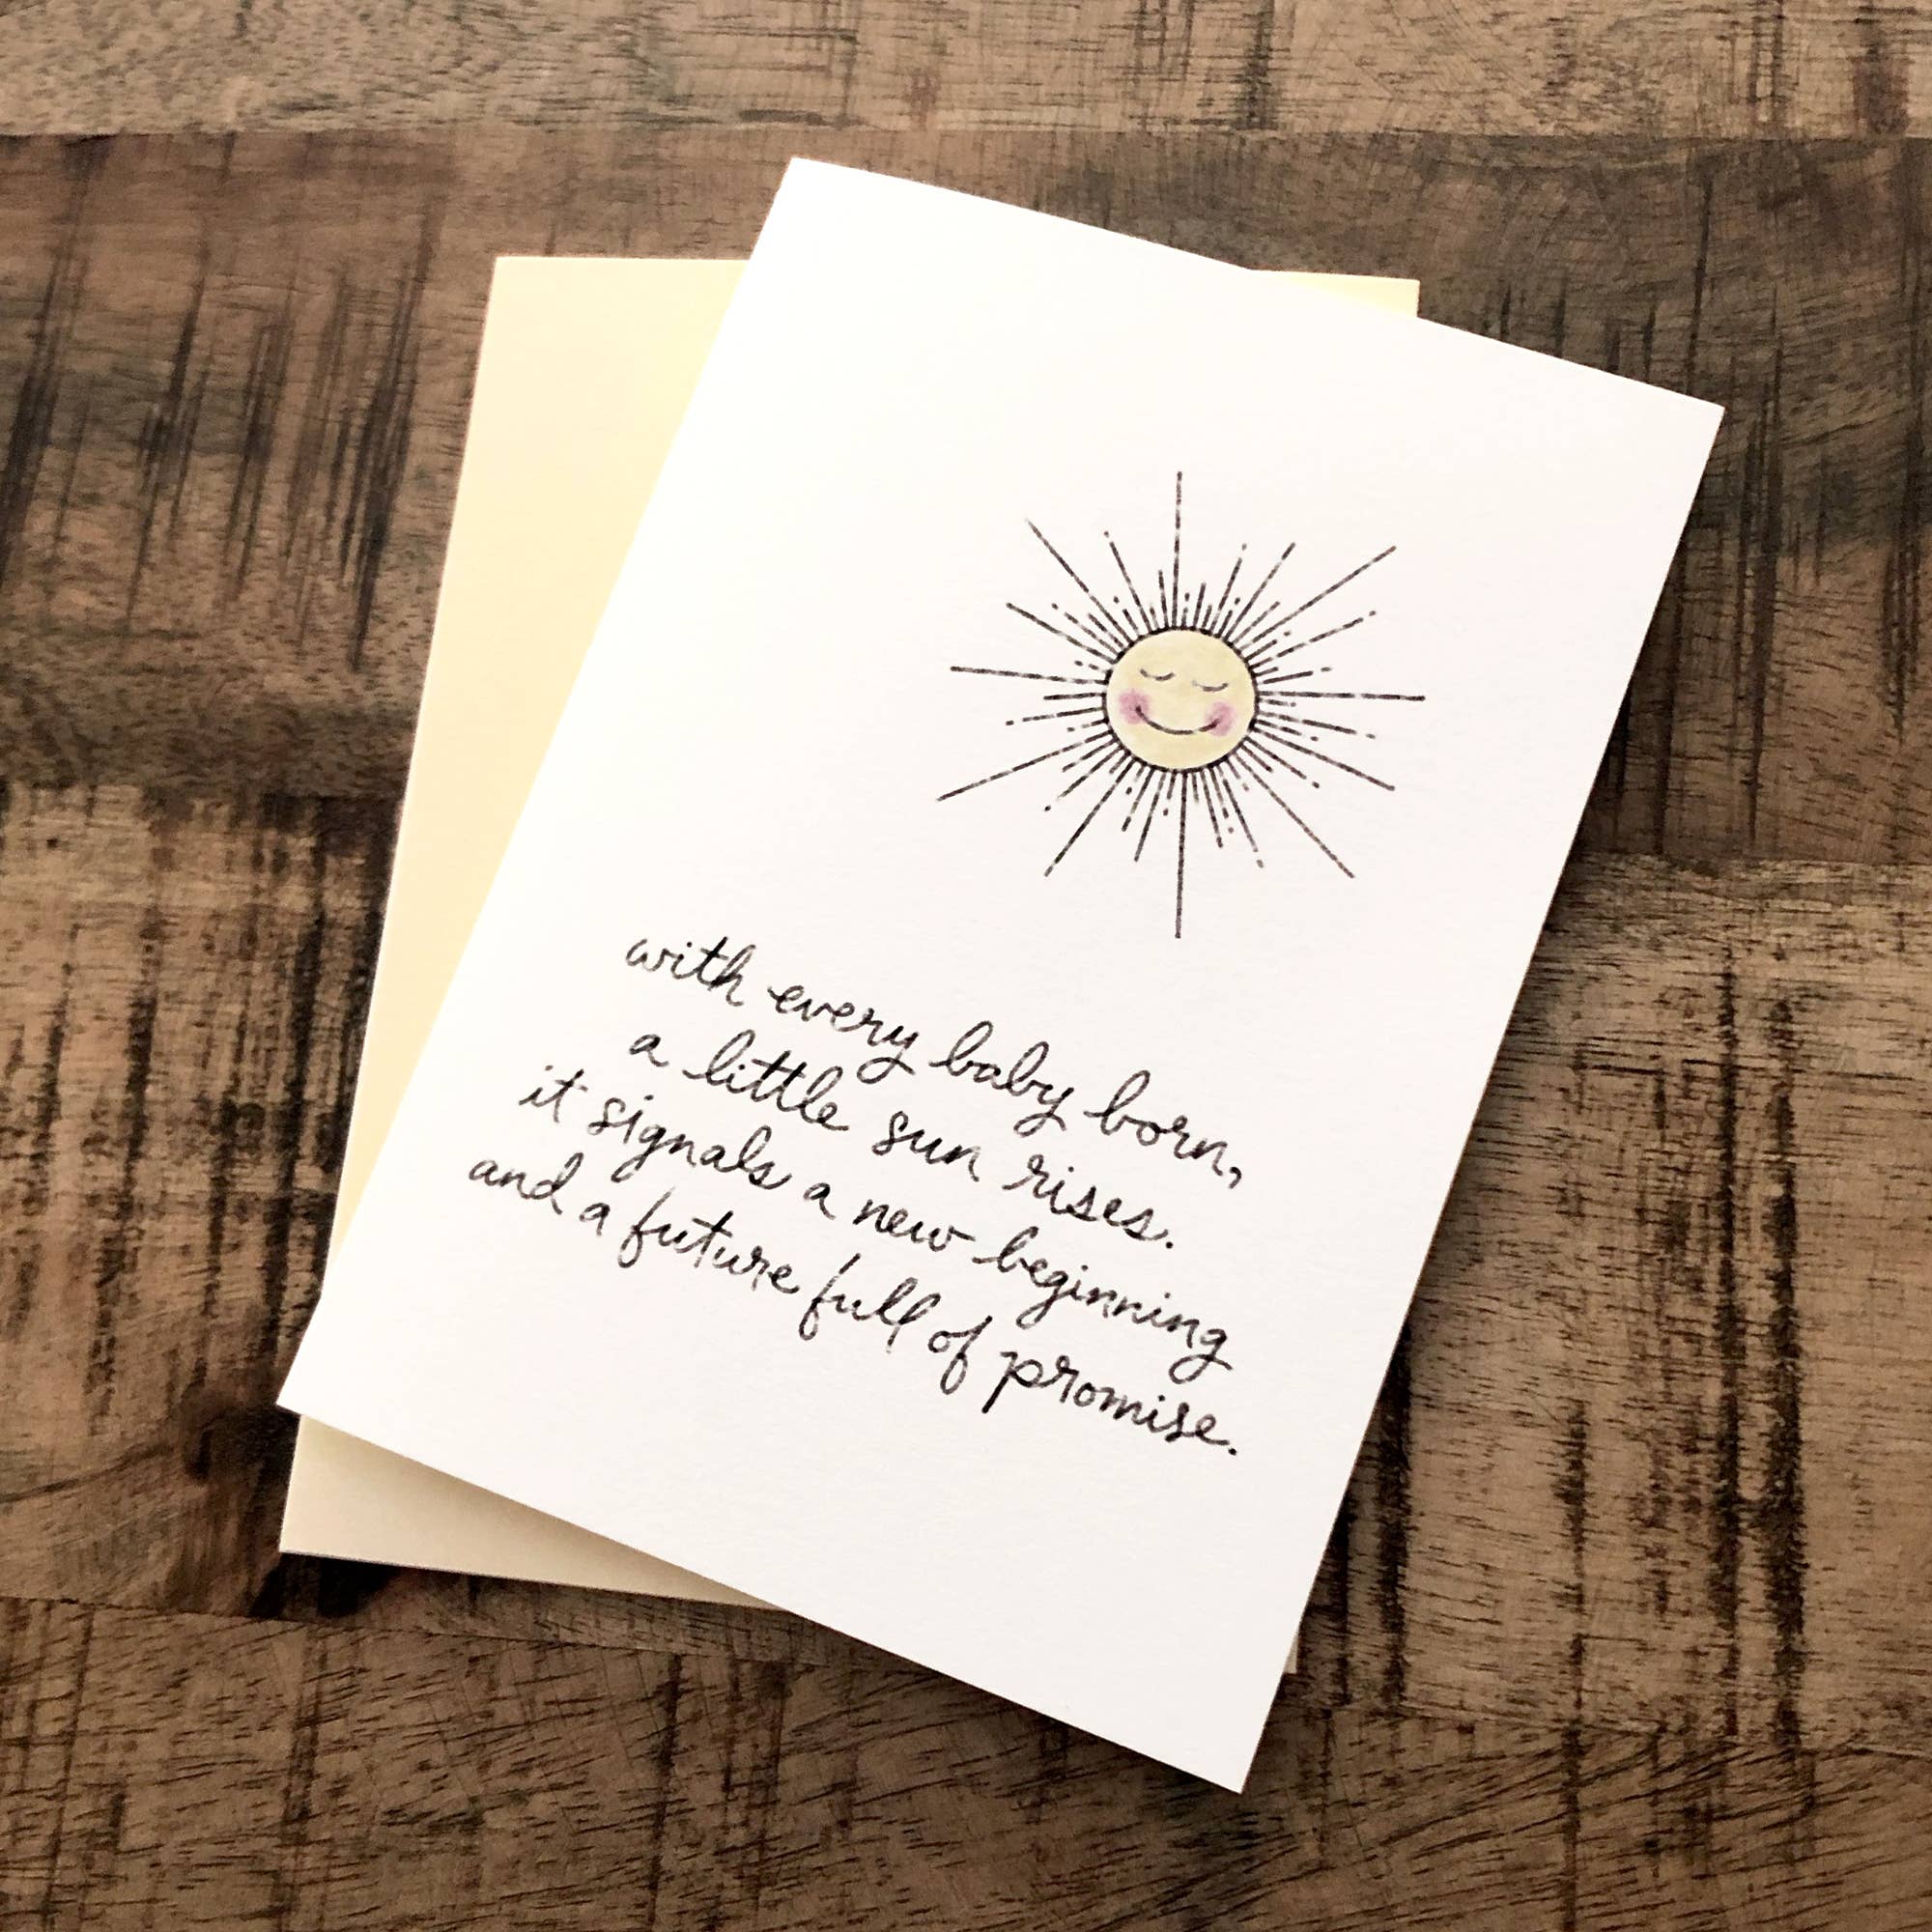 with every baby born,
a little sun rises.
it signals a new beginning
and a future full of promise.